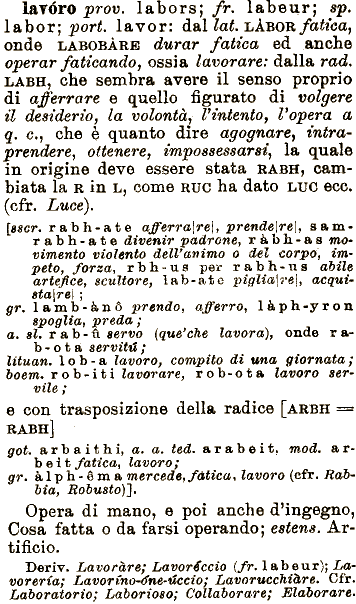 lavóro prov. labors; fr. labeur; sp.
labor; port. lavor: dal lat. LÀBOR fatica,
onde LABOBÀRE durar fatica ed anche
operar faticando, ossia lavorare: dalla rad.
LABH, che sembra avere il senso proprio
di afferrare e quello figurato di volgere
il desiderio, la volontà, l'intento, l'opera a
q. c., che è quanto dire agognare, intra-
prendere, ottenere, impossessarsi, la quale
in origine deve essere stata RABH, cam-
biata la R in L, come RUC ha dato LUC ecc.
(cfr. Luce).
[sscr. rabh-ate afferra[re], prende[re], sam-
rabh-ate divenir padrone, ràbh-as mo-
vimento violento dell'animo o del corpo, im-
peto, forza, rbh-us per rabh-us abile
artefice, scultore, lab-ate piglia[re], acqui-
sta[re];
gr. lamb-ànô prendo, afferro, làph-yron
spoglia, preda;
a. sl. rab-ŭ servo (que'che lavora), onde ra-
b-ota servitù;
lituan. lob-a lavoro, compito di una giornata;
boem. rob-iti lavorare, rob-ota lavoro ser-
vile;
e con trasposizione della radice [ARBH =
RABH]
got. arbaithi, a. a. ted. arabeit, mod. ar-
beit fatica, lavoro;
gr. àlph-êma mercede, fatica, lavoro (cfr. Rab-
bia, Robusto)].
Opera di mano, e poi anche d'ingegno,
Cosa fatta o da farsi operando; estens. Ar-
tificio.
Deriv. Lavoràre; Lavoréccio (fr. labeur); La-
vorería; Lavoríno-óne-úccio; Lavorucchiàre. Cfr.
Laboratorio; Laborioso; Collaborare; Elaborare.